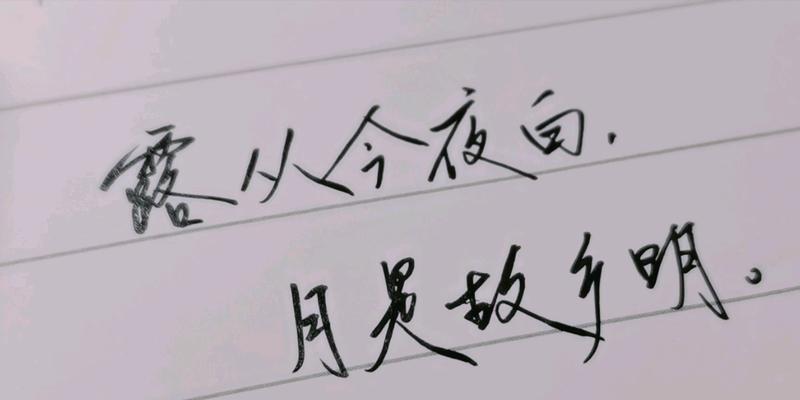 露从今夜白.
月是故乡明。